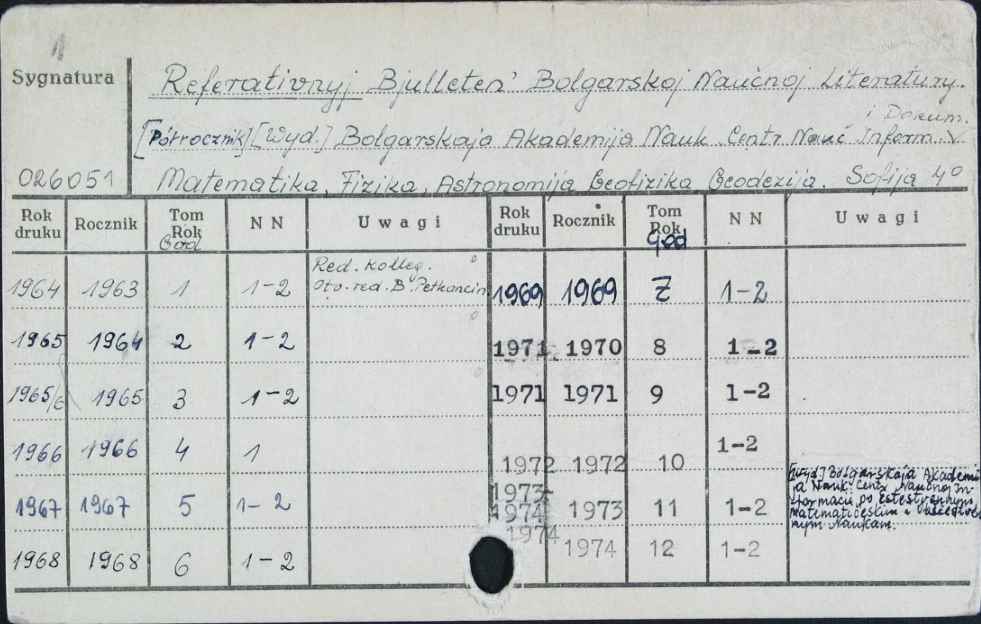 1
Sygnatura
Referativnyj Bjulleten' Bolgarskoj Naučnoj Literatury.
i Dokum.
[Półrocznik] [Wyd.] Bolgarskaja Akademija Nauk. Centr Nauč Inform. V
026051
Matematika, Fizika, Astronomija Geofizika, Geodezija. Sofija 4º
Rok druku Rocznik Tom Rok God N N Uwagi Rok druku Rocznik Tom Rok god N N Uwagi
1964 1963 1 1-2 Red. Kolleg. Otv. red. B. Petkancin 1969 1969 7 1-2
1965 1964 2 1-2 1971 1970 8 1-2
1965/6 1965 3 1-2 1971 1971 9 1-2
1966 1966 4 1 1972 1972 10 1-2
1967 1967 5 1-2 1973-1974 1973 11 1-2 [Wyd.] Bolgarskaja Akademija Nauk Centr Naučnoj Informacii po Estestvennym, Matematičeskim i nym Naukam.
1968 1968 6 1-2 1974 1974 12 1-2